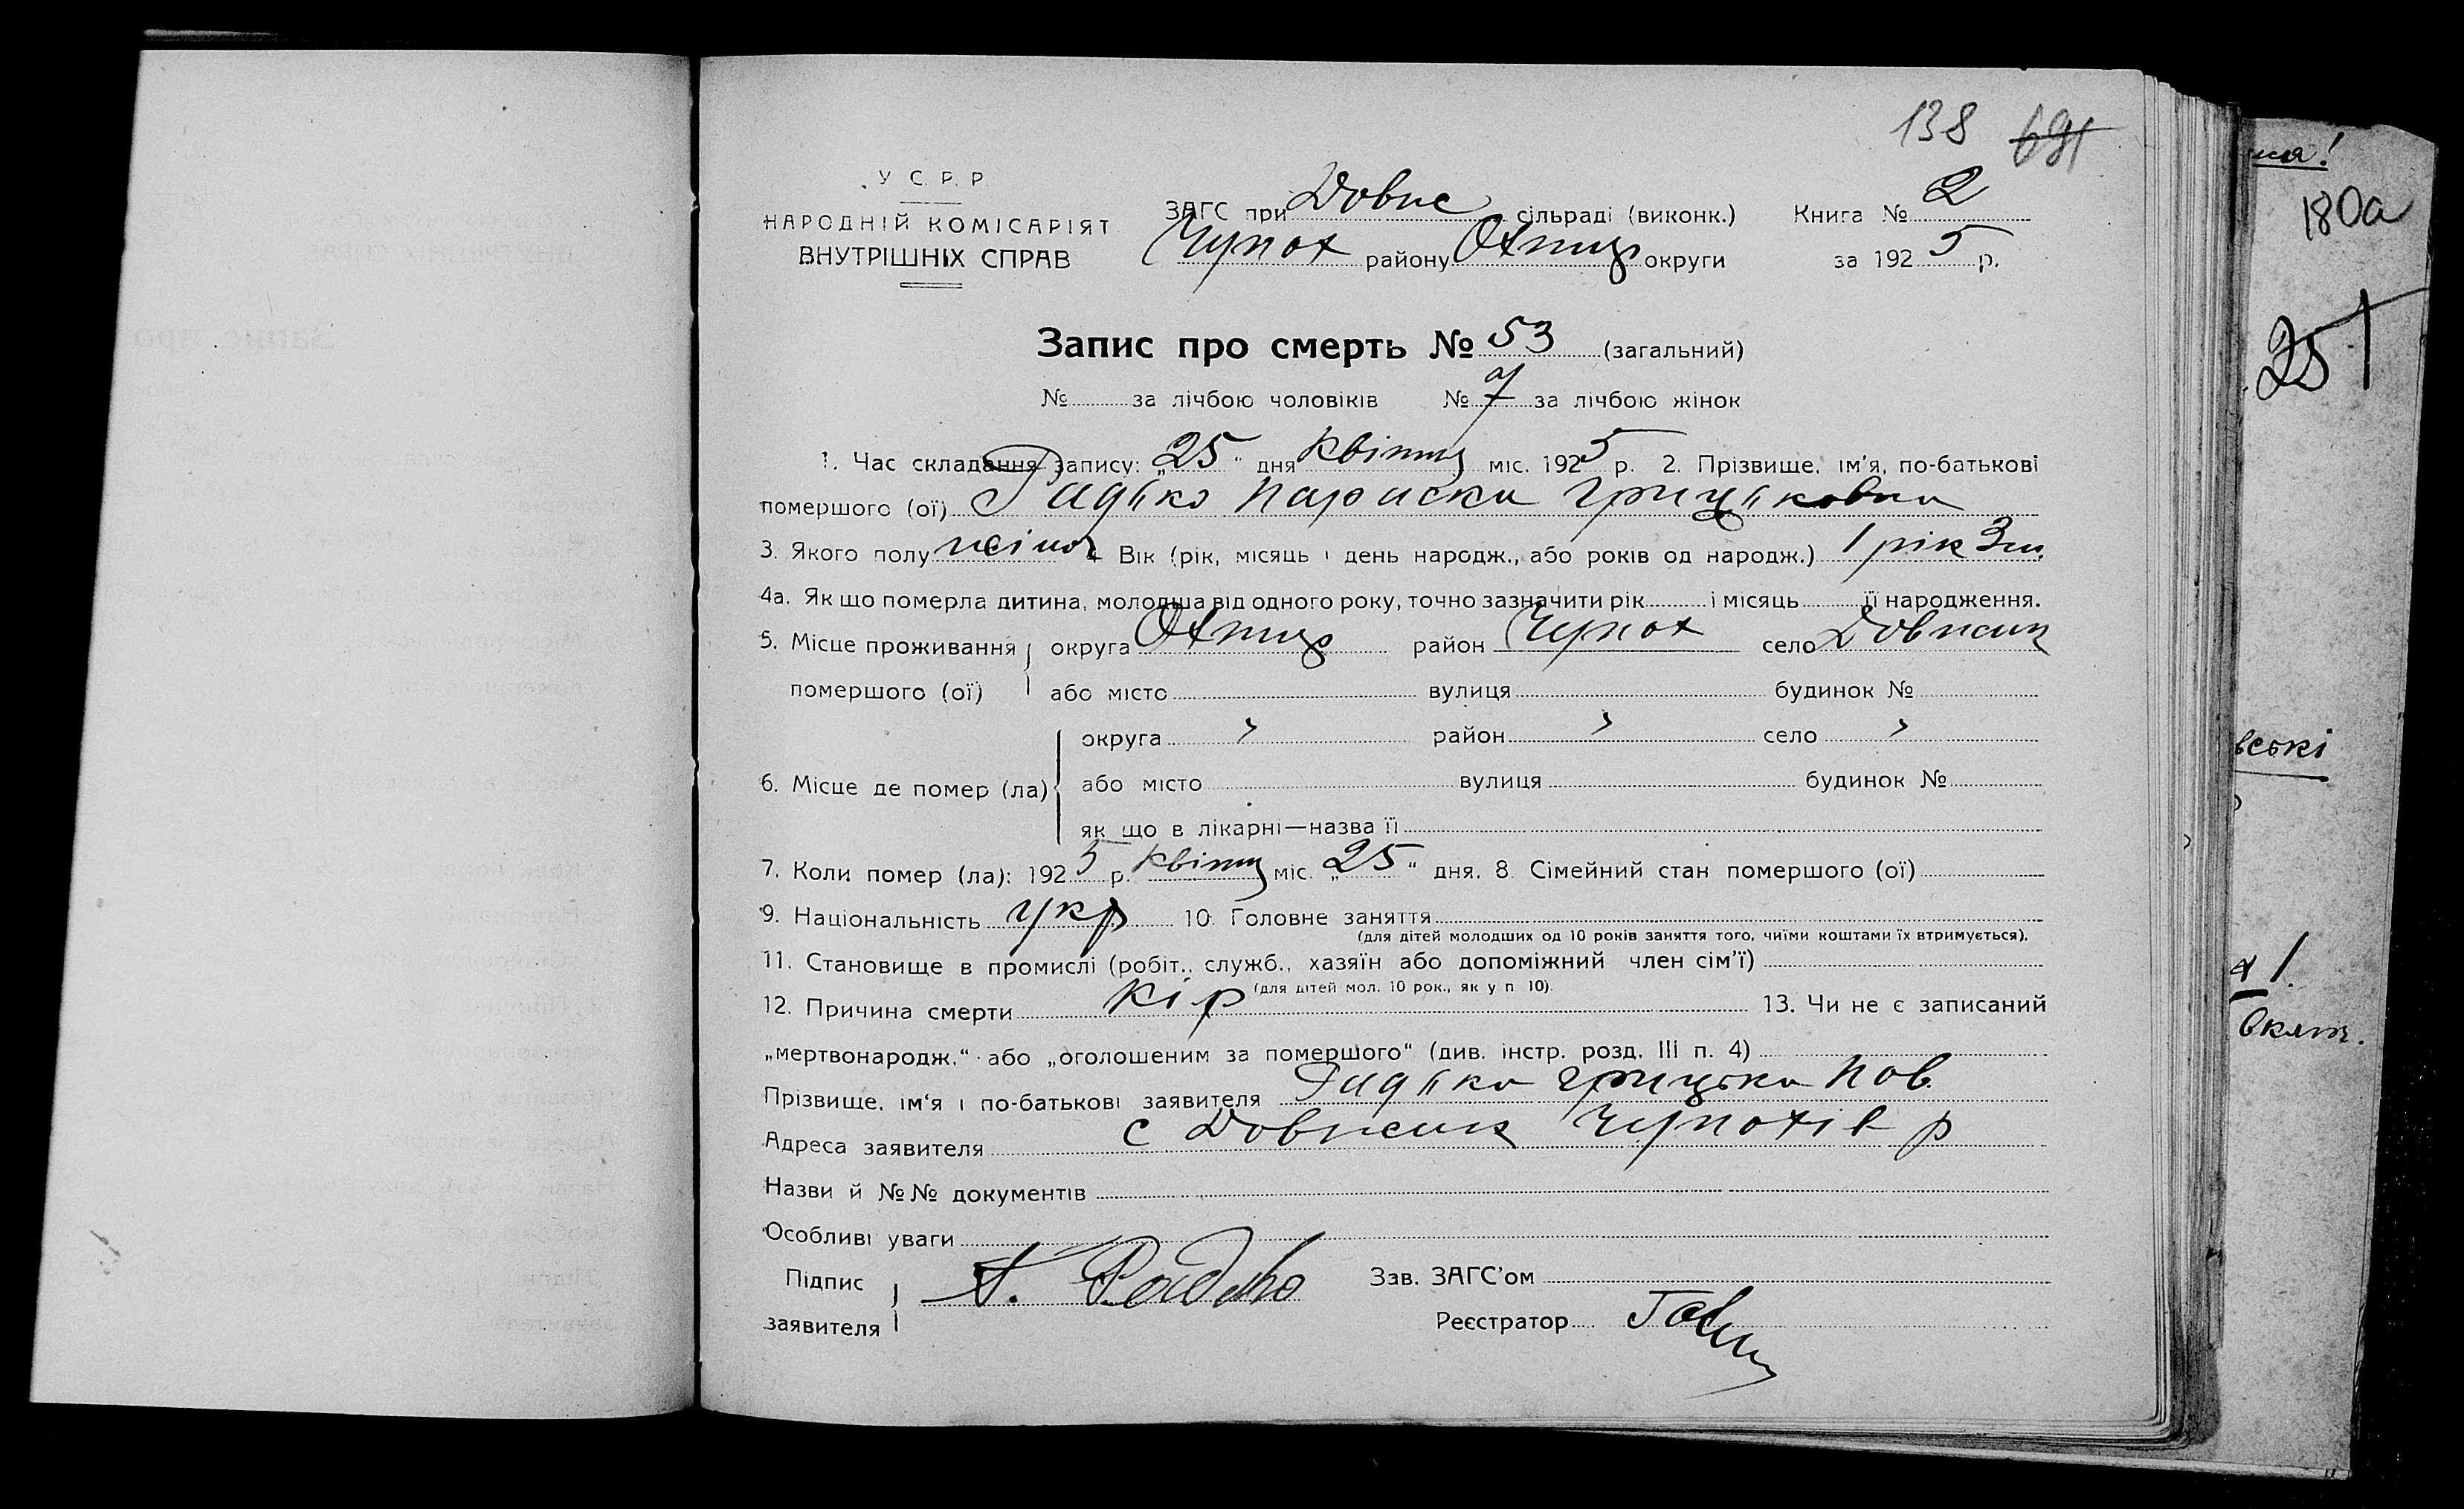 138 691
У С. Р. Р.
НАРОДНІЙ КОМІСАРІЯТ
ВНУТРІШНІХ СПРАВ
ЗАГС при Довпс сільраді (виконк.) Книга № 2
Чупах району Охтир округи за 1925 р.
Запис про смерть № 53 (загальний)
№ за лічбою чоловіків № за лічбою жінок
1. Час складання запису: „25“ дня квітня міс. 1925 р. 2. Прізвище, ім'я, по-батькові
помершого (ої) Радько Параска Грицьковна
3. Якого полу жіноч Вік (рік, місяць і день народж., або років од народж.) 1 рік 3 м.
4а. Як що померла дитина, молодша від одного року, точно зазначити рік і місяць її народження.
5. Місце проживання округа Охтир район Чупах село
помершого (ої) або місто вулиця будинок №
округа " район " село "
6. Місце де помер (ла) або місто вулиця будинок №
як що в лікарні—назва її
7. Коли помер (ла): 1925 р. квітня міс. „25“ дня. 8. Сімейний стан помершого (ої)
9. Національність укр 10. Головне заняття
(для дітей молодших од 10 років заняття того, чиїми коштами їх втримується).
11. Становище в промислі (робіт., служб., хазяїн або допоміжний член сім'ї)
(для дітей мол. 10 рок., як у п 10).
12. Причина смерти кір 13. Чи не є записаний
„мертвонародж.“ або „оголошеним за помершого“ (див. інстр. розд. III п. 4)
Прізвище, ім'я і по-батькові заявителя Радька Грицька Пав.
Адреса заявителя с р
Назви й №№ документів
Особливі уваги
Підпис
заявителя Радько
Зав. ЗАГС'ом
Реєстратор
180а
25
вські